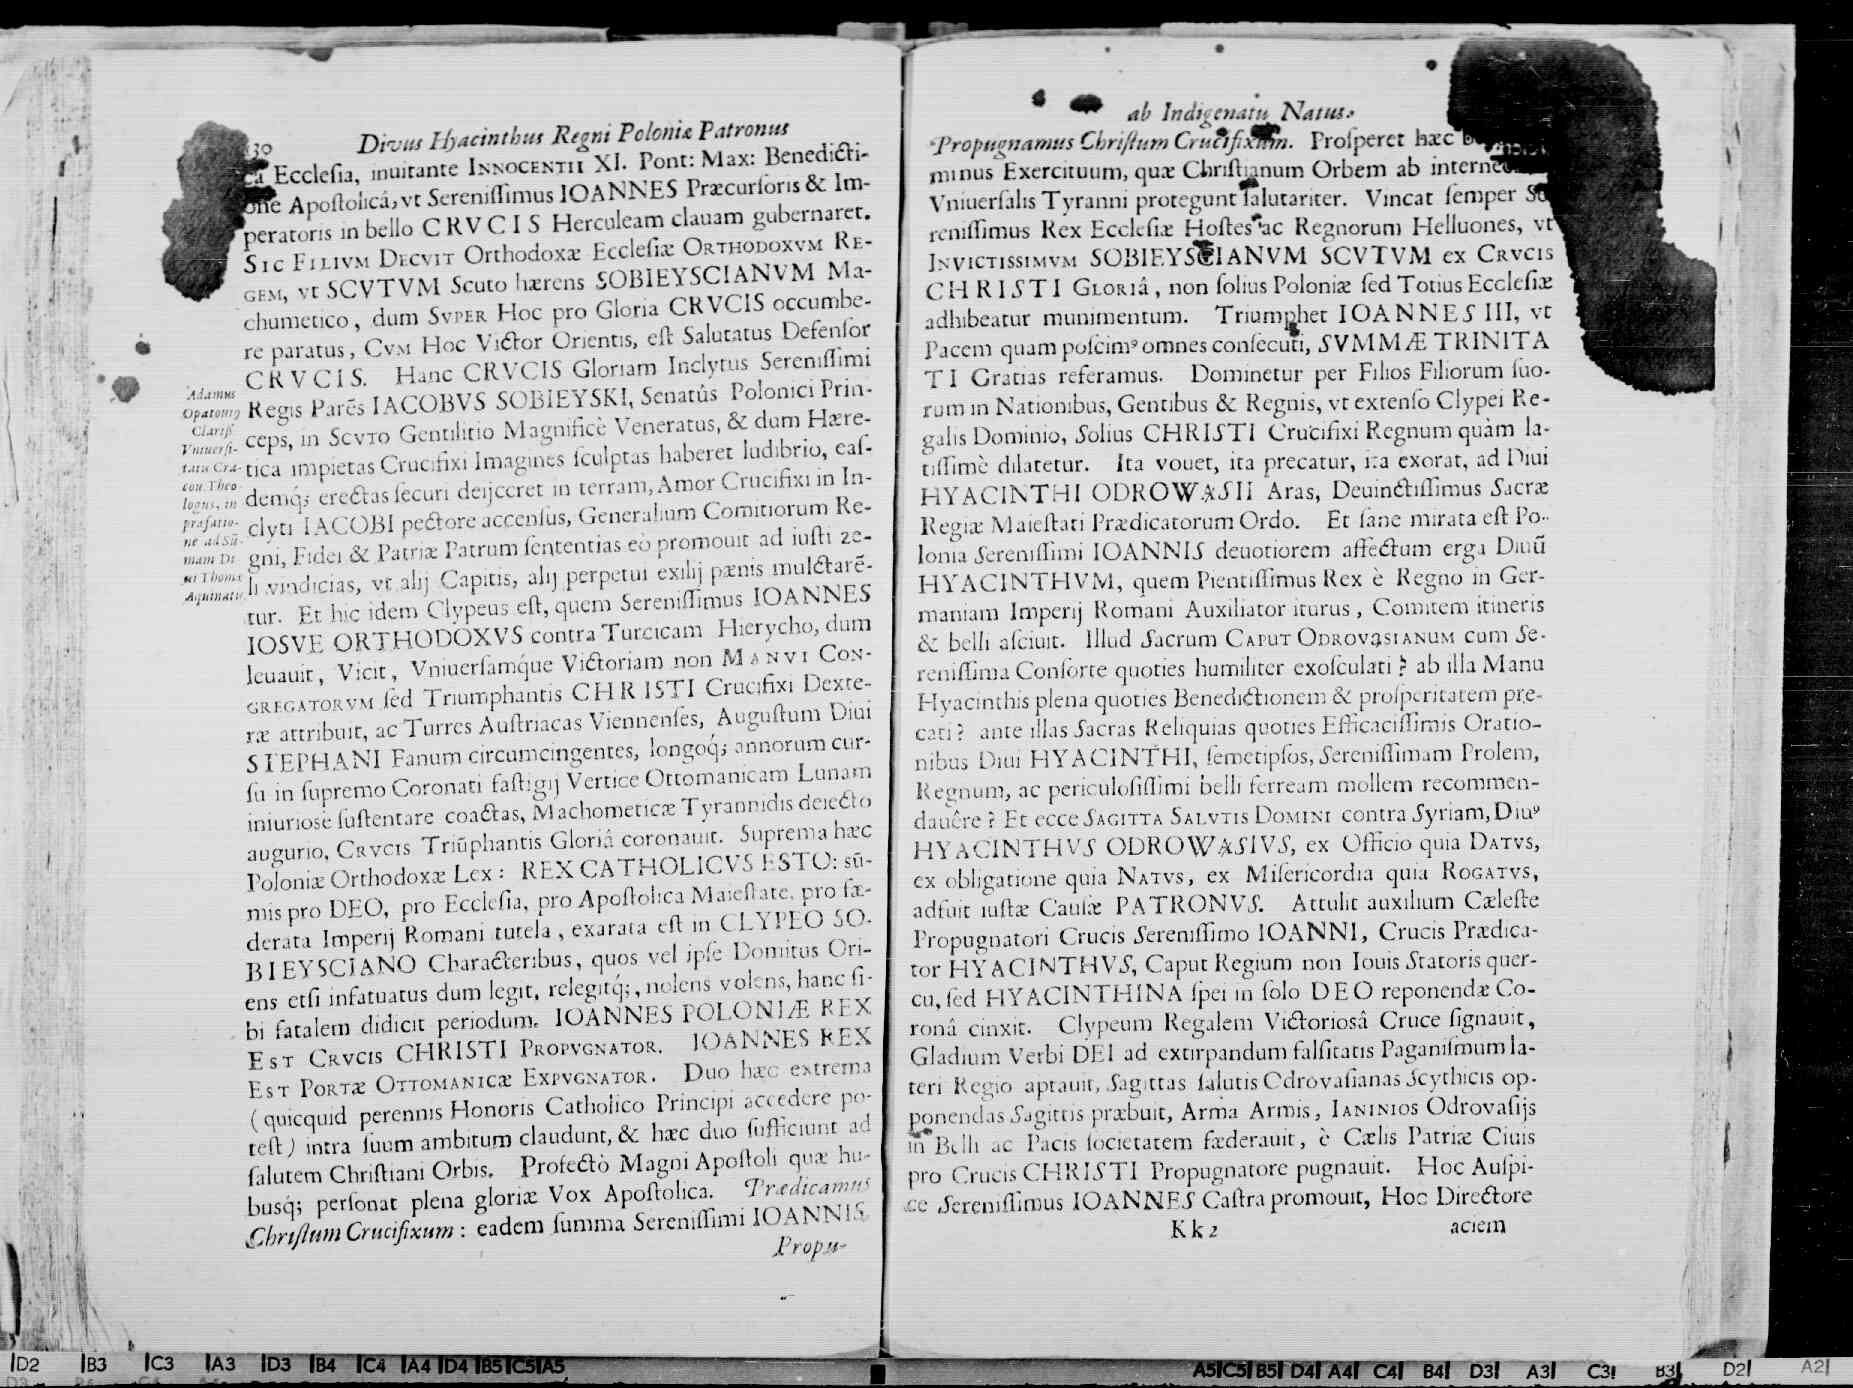 30
Divus Hyacinthus Regni Poloniæ Patronus
ca Ecclesia, inuitante INNOCENTII XI. Pont: Max: Benedicti-
one Apostolicâ, vt Serenissimus IOANNES Præcursoris & Im-
peratoris in bello CRVCIS Herculeam clauam gubernaret.
SIC FILIVM DECVIT Orthodoxæ Ecclesiæ ORTHODOXVM RE-
GEM, vt SCVTVM Scuto hærens SOBIEYSCIANVM Ma-
chumetico, dum SVPER Hoc pro Gloria CRVCIS occumbe-
re paratus, CVM Hoc Victor Orientis, est Salutatus Defensor
CRVCIS. Hanc CRVCIS Gloriam Inclytus Serenissimi
Regis Parẽs IACOBVS SOBIEYSKI, Senatûs Polonici Prin-
ceps, in SCVTO Gentilitio Magnificè Veneratus, & dum Hære-
tica impietas Crucifixi Imagines sculptas haberet ludibrio, eas-
demq́; erectas securi deijceret in terram, Amor Crucifixi in In-
clyti IACOBI pectore accensus, Generalium Comitiorum Re-
gni, Fidei & Patriæ Patrum sententias eò promouit ad iusti ze-
li vindicias, vt alij Capitis, alij perpetui exilij pænis mulctarẽ-
tur. Et hic idem Clypeus est, quem Serenissimus IOANNES
IOSVE ORTHODOXVS contra Turcicam Hierycho, dum
leuauit, Vicit, Vniuersamq́ue Victoriam non MANVI CON-
GREGATORVM sed Triumphantis CHRISTI Crucifixi Dexte-
ræ attribuit, ac Turres Austriacas Viennenses, Augustum Diui
STEPHANI Fanum circumcingentes, longoq́; annorum cur-
su in supremo Coronati fastigij Vertice Ottomanicam Lunam
iniuriosè sustentare coactas, Machometicæ Tyrannidis deiecto
augurio, CRVCIS Triũphantis Gloriâ coronauit. Suprema hæc
Poloniæ Orthodoxæ Lex: REX CATHOLICVS ESTO: sũ-
mis pro DEO, pro Ecclesia, pro Apostolica Maiestate, pro fæ-
derata Imperij Romani tutela, exarata est in CLYPEO SO-
BIEYSCIANO Characteribus, quos vel ipse Domitus Ori-
ens etsi infatuatus dum legit, relegitq́;, nolens volens, hanc si-
bi fatalem didicit periodum. IOANNES POLONIÆ REX
EST CRVCIS CHRISTI PROPVGNATOR. IOANNES REX
EST PORTÆ OTTOMANICÆ EXPVGNATOR. Duo hæc extrema
(quicquid perennis Honoris Catholico Principi accedere po-
test) intra suum ambitum claudunt, & hæc duo sufficiunt ad
salutem Christiani Orbis. Profectò Magni Apostoli quæ hu-
busq́; personat plena gloriæ Vox Apostolica. Prædicamus
Christum Crucifixum: eadem summa Serenissimi IOANNIS
Propu-
Adamus
Opatouig
Clariss.
Vniuersi-
tatis Cra-
cou. Theo-
logus, in
præfatio-
ne ad Sũ-
mam Di-
ui Thomæ
Aquinatis
ab Indigenatu Natus.
Propugnamus Christum Crucifixum. Prosperet hæc
minus Exercituum, quæ Christianum Orbem ab
Vniuersalis Tyranni protegunt salutariter. Vincat semper Se-
renissimus Rex Ecclesiæ Hostes ac Regnorum Helluones, vt
INVICTISSIMVM SOBIEYSCIANVM SCVTVM ex CRVCIS
CHRISTI GLORIâ, non solius Poloniæ sed Totius Ecclesiæ
adhibeatur munimentum. Triumphet IOANNES III, vt
Pacem quam poscimꝰ omnes consecuti, SVMMÆ TRINITA
TI Gratias referamus. Dominetur per Filios Filiorum suo-
rum in Nationibus, Gentibus & Regnis, vt extenso Clypei Re-
galis Dominio, Solius CHRISTI Crucifixi Regnum quàm la-
tissimè dilatetur. Ita vouet, ita precatur, ita exorat, ad Diui
HYACINTHI ODROWASII Aras, Deuinctissimus Sacræ
Regiæ Maiestati Prædicatorum Ordo. Et sane mirata est Po-
lonia Serenissimi IOANNIS deuotiorem affectum erga Diuũ
HYACINTHVM, quem Pientissimus Rex è Regno in Ger-
maniam Imperij Romani Auxiliator iturus, Comitem itineris
& belli asciuit. Illud Sacrum CAPUT ODROVASIANUM cum Se-
renissima Consorte quoties humiliter exosculati? ab illa Manu
Hyacinthis plena quoties Benedictionem & prosperitatem pre-
cati? ante illas Sacras Reliquias quoties Efficacissimis Oratio-
nibus Diui HYACINTHI, semetipsos, Serenissimam Prolem,
Regnum, ac periculosissimi belli ferream mollem recommen-
dauêre? Et ecce SAGITTA SALVTIS DOMINI contra Syriam, Diuꝰ
HYACINTHVS ODROWASIVS, ex Officio quia DATVS,
ex obligatione quia NATVS, ex Misericordia quia ROGATVS,
adfuit iustæ Causæ PATRONVS. Attulit auxilium Cæleste
Propugnatori Crucis Serenissimo IOANNI, Crucis Prædica-
tor HYACINTHVS, Caput Regium non Iouis Statoris quer-
cu, sed HYACINTHINA spei in solo DEO reponendæ Co-
ronâ cinxit. Clypeum Regalem Victoriosâ Cruce signauit,
Gladium Verbi DEI ad extirpandum falsitatis Paganismum la-
teri Regio aptauit, Sagittas salutis Odrovasianas Scythicis op-
ponendas Sagittis præbuit, Arma Armis, IANINIOS Odrovasijs
in Belli ac Pacis societatem fæderauit, è Cælis Patriæ Ciuis
pro Crucis CHRISTI Propugnatore pugnauit. Hoc Auspi-
ce Serenissimus IOANNES Castra promouit, Hoc Directore
Kk2
aciem
D2 B3 C3 A3 D3 B4 C4 A4 D4 B5 C5 A5
A5 C5 B5 D4 A4 C4 B4 D3 A3 C3 B3 D2 A2